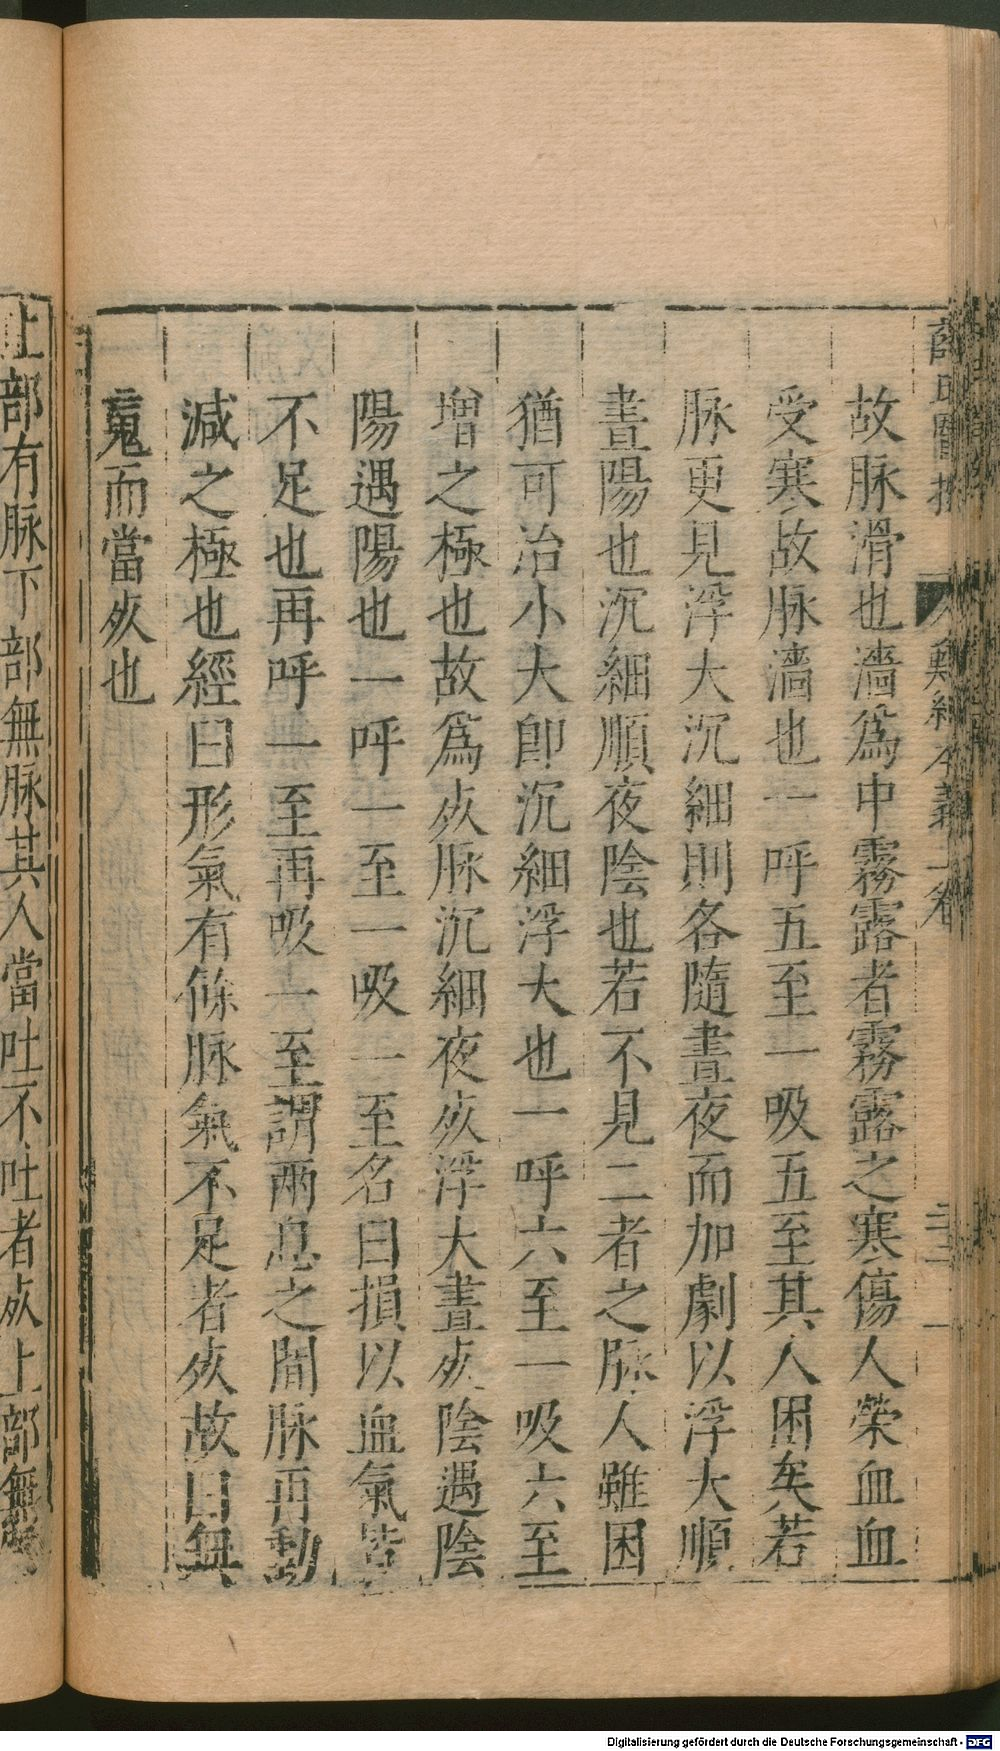 故脉滑也濇爲中霧露者霧露之寒傷人榮血血
受寒故脉濇也一呼五至一吸五至其人困矣若
脉更見浮大沉細則各隨晝夜而加劇以浮大順
晝陽也沉細順夜陰也若不見二者之脉人雖困
猶可治小大卽沉細浮大也一呼六至一吸六至
增之極也故爲死脉沉細夜死浮大晝死陰遇陰
陽遇陽也一呼一至一吸一至名曰損以血氣皆
不足也再呼一至再吸一至謂兩息之間脉再動
減之極也經曰形氣有餘脉氣不足者死故曰無
䰟而當死也
上部有脉下部無脉其人當吐不吐者死上部無
Digitalisierung gefördert durch die Deutsche Forschungsgemeinschaft - DFG